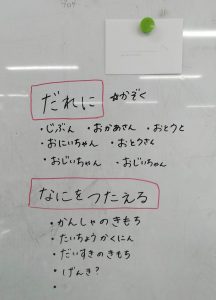 だれに ☆かぞく
・じぶん ・おかあさん ・おとうと
・おにいちゃん ・おとうさん
・おじいちゃん ・おじいちゃん
なにをつたえる
・かんしゃのきもち
・たいちょうかくにん
・だいすきのきもち
・げんき?
・